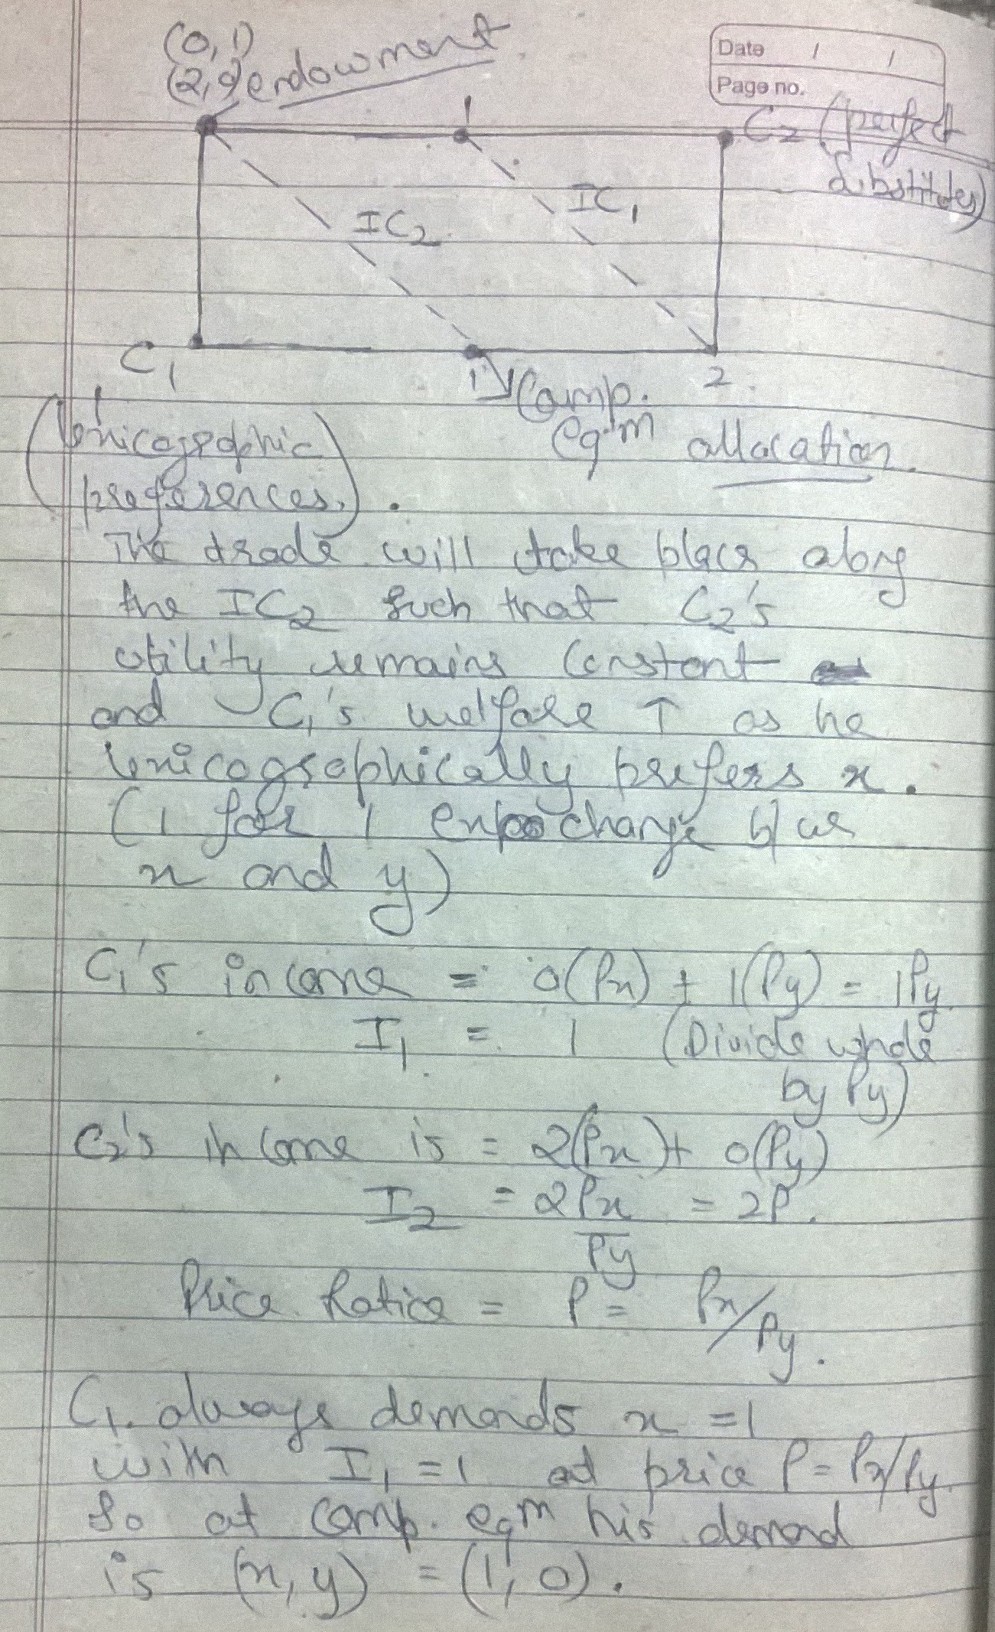 (0,1)
(2,0) endowment
Date / /
Page no.
1
C2 (perfect
substitutes)
IC1
IC2
C1
1
2
Comp.
eqm allocation.
(lexicographic
preferences.) .
The trade will take place along
the IC2 such that C2's
utility remains constant
and C1's welfare ↑ as he
lexicographically prefers x.
(1 for 1 exchange b/w
x and y)
C1's income = 0(Px) + 1(Py) = 1Py
I1 = 1 (Divide whole
by Py)
C2's income is = 2(Px) + 0(Py)
I2 = 2Px/Py = 2P.
Price Ratio = P = Px/Py.
C1 always demands x = 1
with I1 = 1 at price P = Px/Py.
So at comp. eqm his demand
is (x, y) = (1, 0).